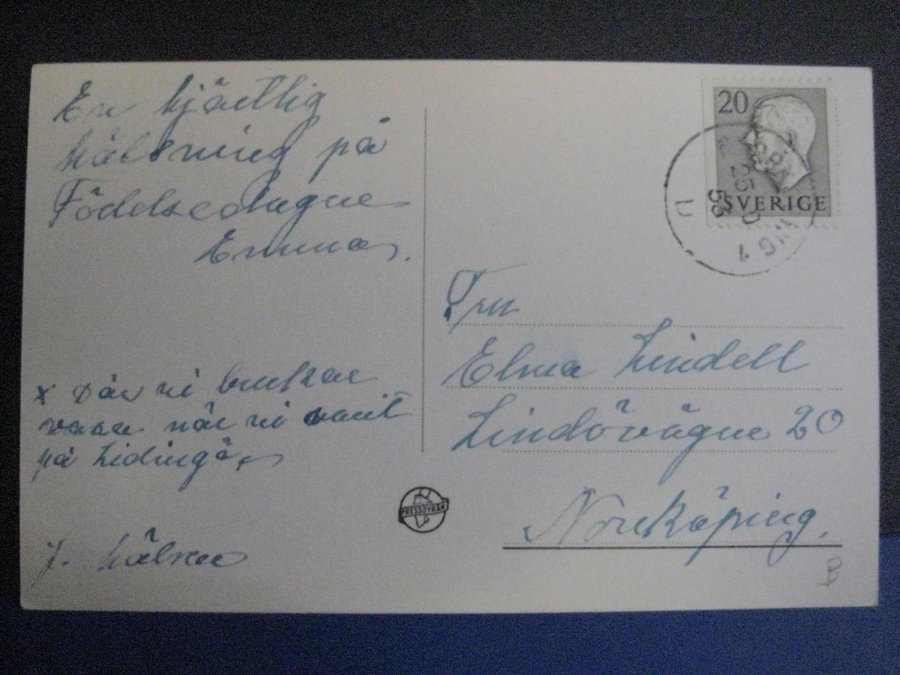 En hjärtlig
hälsning på
Födelsedagen
Emma.
x Där vi brukar
vara när vi varit
på Lidingö,
J. hälsar
20
SVERIGE
25
55
Fru
Elma Lindell
Lindövägen 20
Norrköping.
PRESSBYRÅN
B